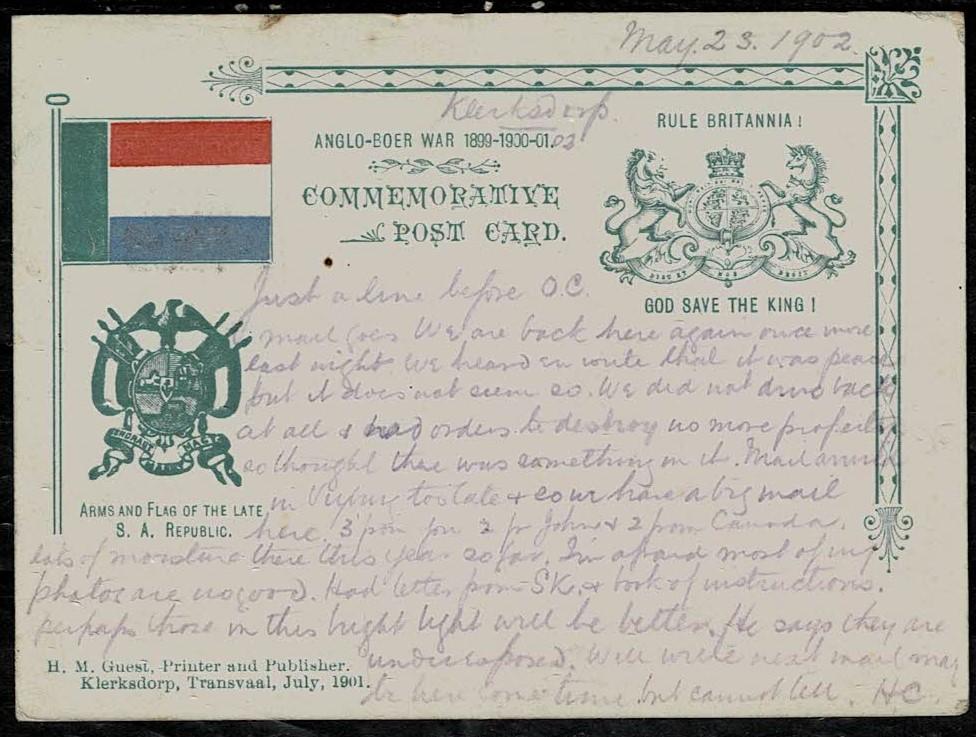 May. 23. 1902
Klerksdorp.
ANGLO-BOER WAR 1899-1900-01.02
COMMEMORATIVE
POST CARD.
RULE BRITANNIA!
DIEU ET MON DROIT
GOD SAVE THE KING!
ARMS AND FLAG OF THE LATE
S. A. REPUBLIC.
Just a line before O.C.
mail goes We are back here again once more
last night. We heard en route that it was peace
but it does not seem so. We did not drive back
at all & had orders to destroy no more properties
so thought there was something in it. Mail arrived
in Vryburg too late & so we have a big mail
here. 3 from you 2 fr John & 2 from Canada.
lots of moisture there this year so far. I'm afraid most of my
photos are no good. Had letter from SK. & book of instructions.
perhaps those in this bright light will be better. He says they are
underexposed. Will write next mail may
be here some time but cannot tell. HC.
H. M. Guest, Printer and Publisher.
Klerksdorp, Transvaal, July, 1901.